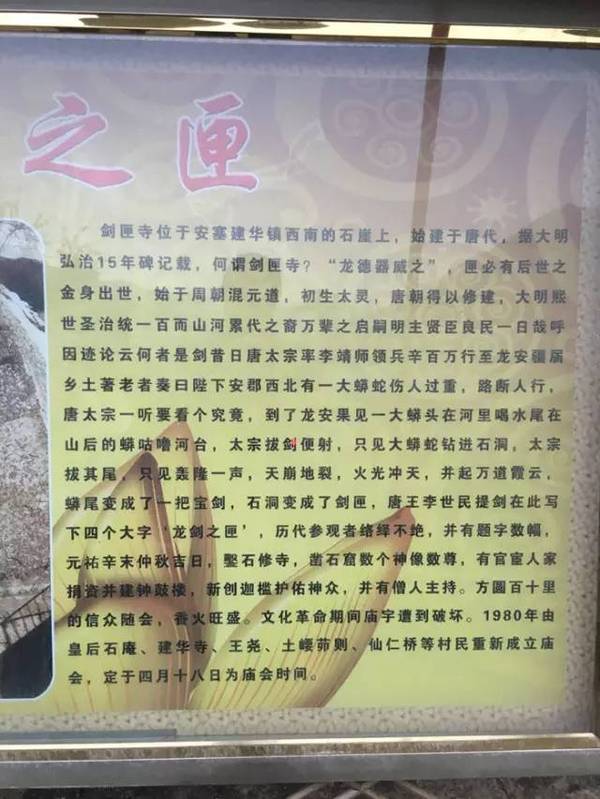 之匣
剑匣寺位于安塞建华镇西南的石崖上，始建于唐代，据大明
弘治15年碑记载，何谓剑匣寺？“龙德器威之”，匣必有后世之
金身出世，始于周朝混元道，初生太灵，唐朝得以修建，大明熙
世圣治统一百而山河累代之裔万辈之启嗣明主贤臣良民一日哉呼
因迹论云何者是剑昔日唐太宗率李靖师领兵辛百万行至龙安疆届
乡土著老者奏曰陛下安郡西北有一大蟒蛇伤人过重，路断人行，
唐太宗一听要看个究竟，到了龙安果见一大蟒头在河里喝水尾在
山后的蟒咕噜河台，太宗拔剑便射，只见大蟒蛇钻进石洞，太宗
拔其尾，只见轰隆一声，天崩地裂，火光冲天，并起万道霞云，
蟒尾变成了一把宝剑，石洞变成了剑匣，唐王李世民提剑在此写
下四个大字‘龙剑之匣’，历代参观者络绎不绝，并有题字数幅，
元祐辛末仲秋吉日，鏨石修寺，凿石窟数个神像数尊，有官宦人家
捐资并建钟鼓楼，新创迦槛护佑神众，并有僧人主持。方圆百十里
的信众随会，香火旺盛。文化革命期间庙字遭到破坏。1980年由
皇后石庵、建华寺、王尧、土崾茆则、仙仁桥等村民重新成立庙
会，定于四月十八日为庙会时间。